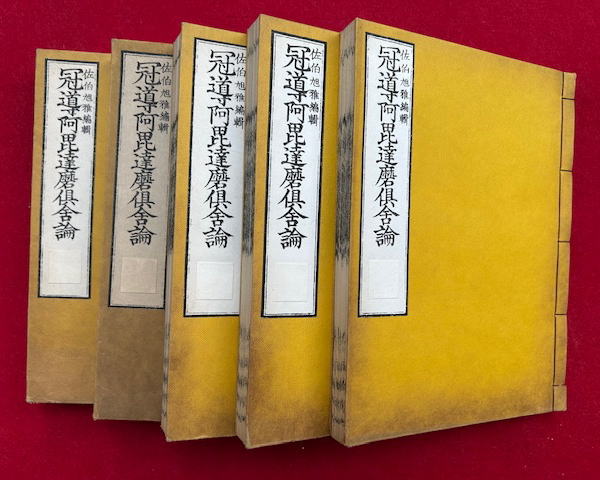 佐伯旭雅編輯
冠導阿毘達磨俱舍論
佐伯旭雅編輯
冠導阿毘達磨俱舍論
佐伯旭雅編輯
冠導阿毘達磨俱舍論
佐伯旭雅編輯
冠導阿毘達磨俱舍論
佐伯旭雅編輯
冠導阿毘達磨俱舍論